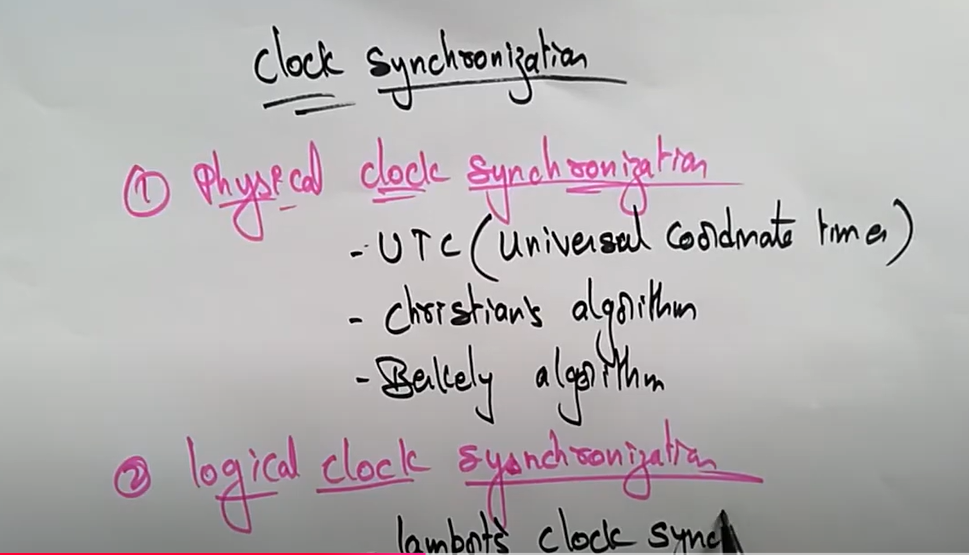 clock synchronization
① Physical clock synchronization
- UTC (Universal Coordinate timer)
- Christian's algorithm
- Berkely algorithm
② logical clock sysnchronization
lambot's clock sync